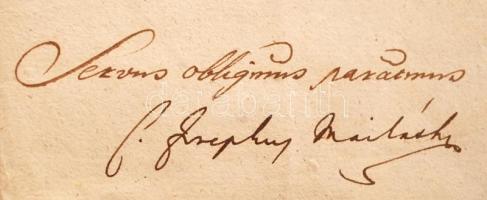 Servus obligmus paratmus
C. Josephus Mailáth
darabanth